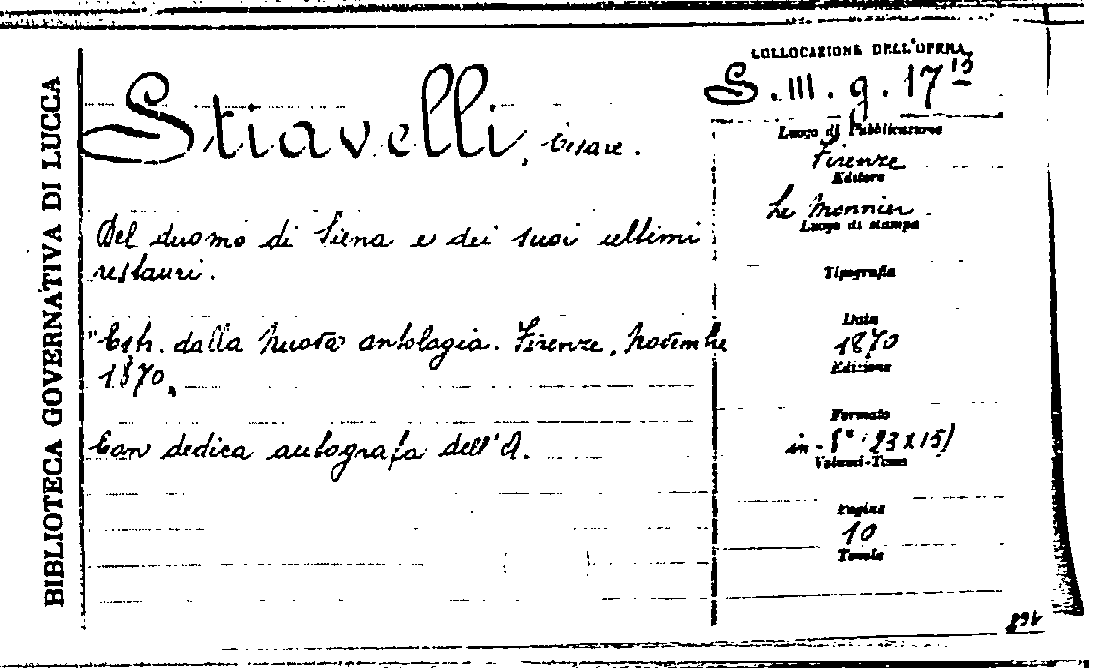 BIBLIOTECA GOVERNATIVA DI LUCCA
Stiavelli, Cesare.
Del duomo di Siena e dei suoi ultimi
restauri.
"Estr. dalla Nuova antologia. Firenze, Novembre
1870.
Con dedica autografa dell'A.
COLLOCAZIONE DELL'OPERA
S. III. g. 17
Luogo di Pubblicazione
Firenze
Editore
Le Monnier
Luogo di stampa
Tipografia
Data
1870
Edizione
Formato
in-8° (23x15)
Volumi-Tomo
Pagine
10
Tavole